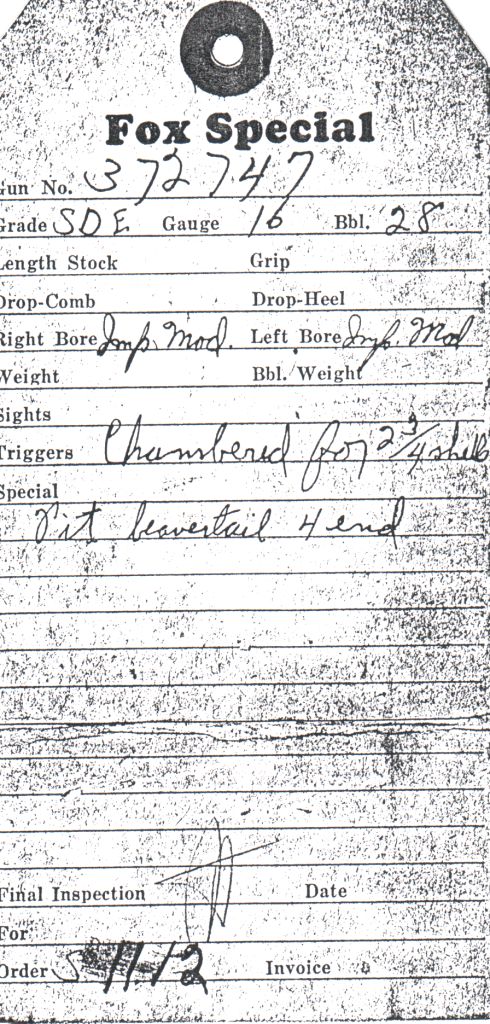 Fox Special
Gun No. 372747
Grade SDE Gauge 16 Bbl. 28
Length Stock Grip
Drop-Comb Drop-Heel
Right Bore Imp. Mod. Left Bore Imp. Mod
Weight Bbl. Weight
Sights
Triggers Chambered for 2 3/4 shells
Special
Fit beavertail 4 end
Final Inspection Date
For
Order S 1112 Invoice